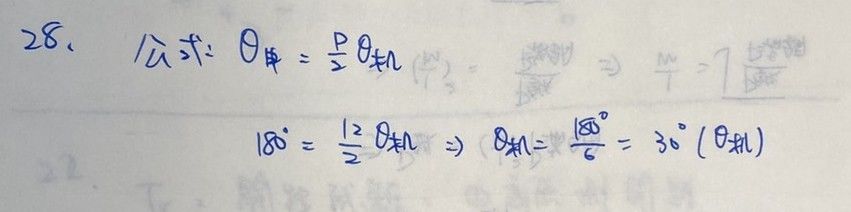 28. 公式: θ电 = P/2 θ机
180° = 12/2 θ机 => θ机 = 180°/6 = 30° (θ机)